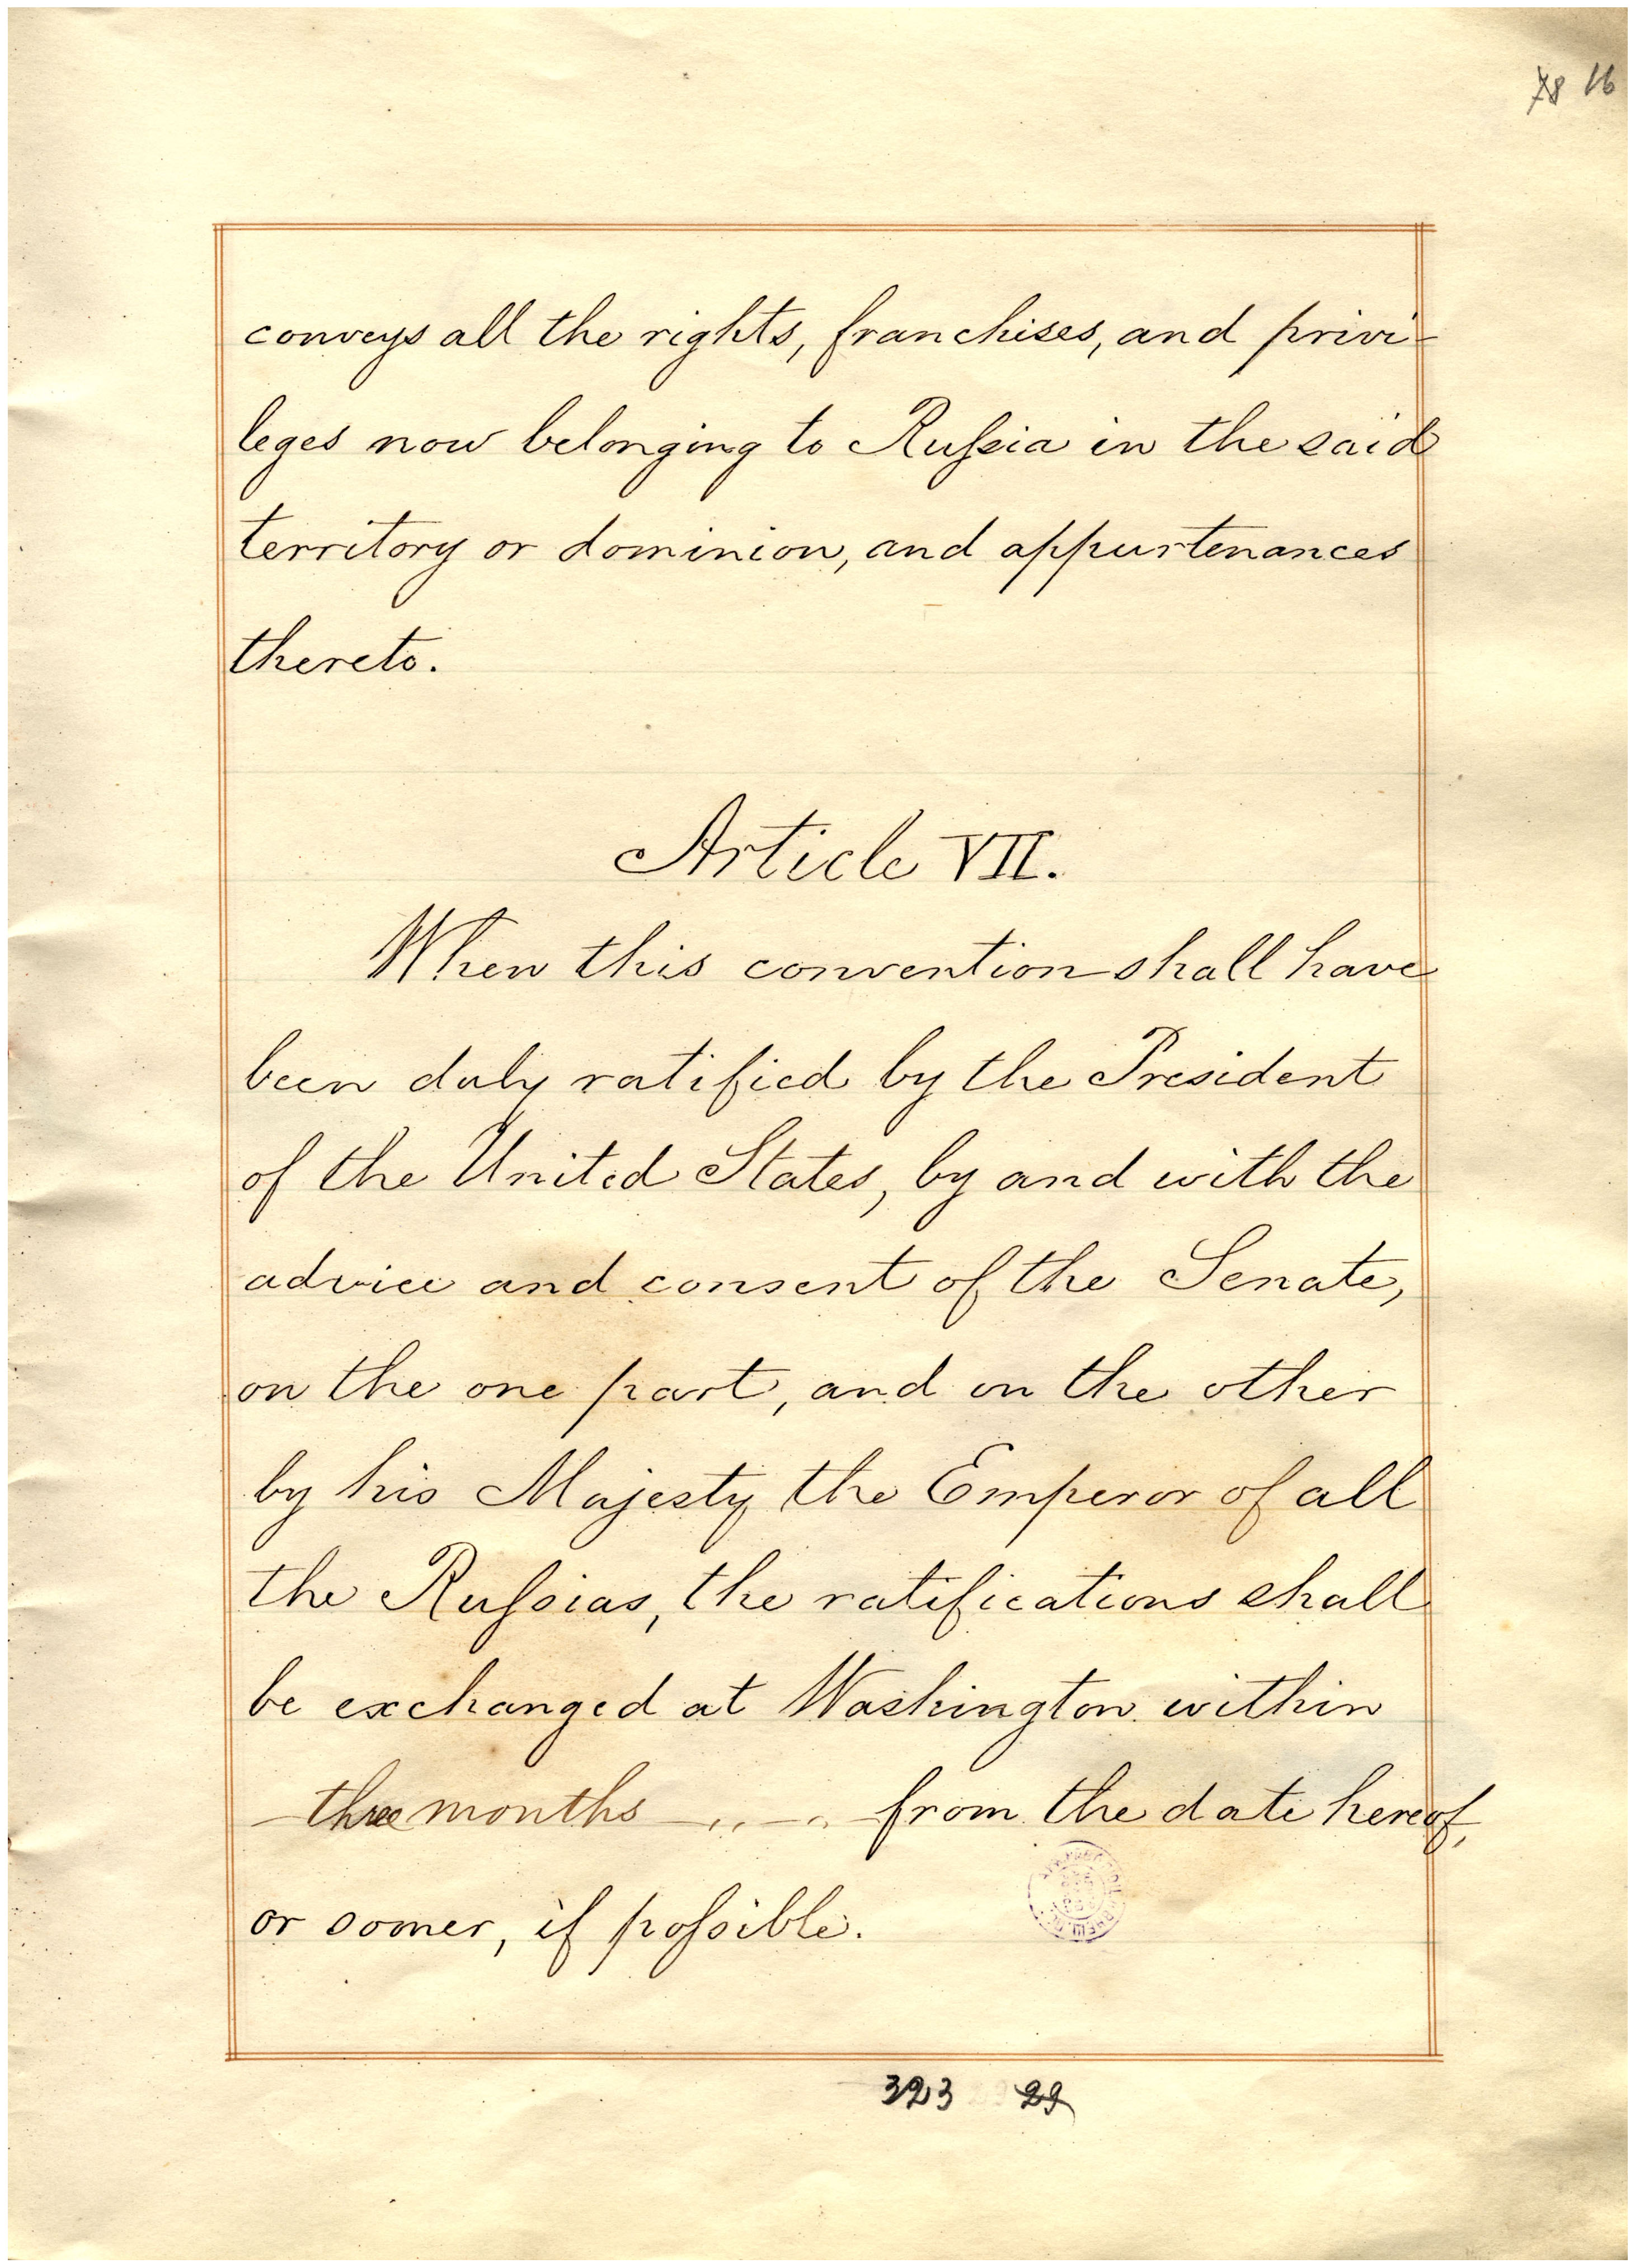 16
conveys all the rights, franchises, and privi-
leges now belonging to Ruſsia in the said
territory or dominion, and appurtenances
thereto.
Article VII.
When this convention shall have
been duly ratified by the President
of the United States, by and with the
advice and consent of the Senate,
on the one part, and on the other
by his Majesty the Emperor of all
the Ruſsias, the ratifications shall
be exchanged at Washington within
three months from the date hereof,
or sooner, if poſsible.
323 29